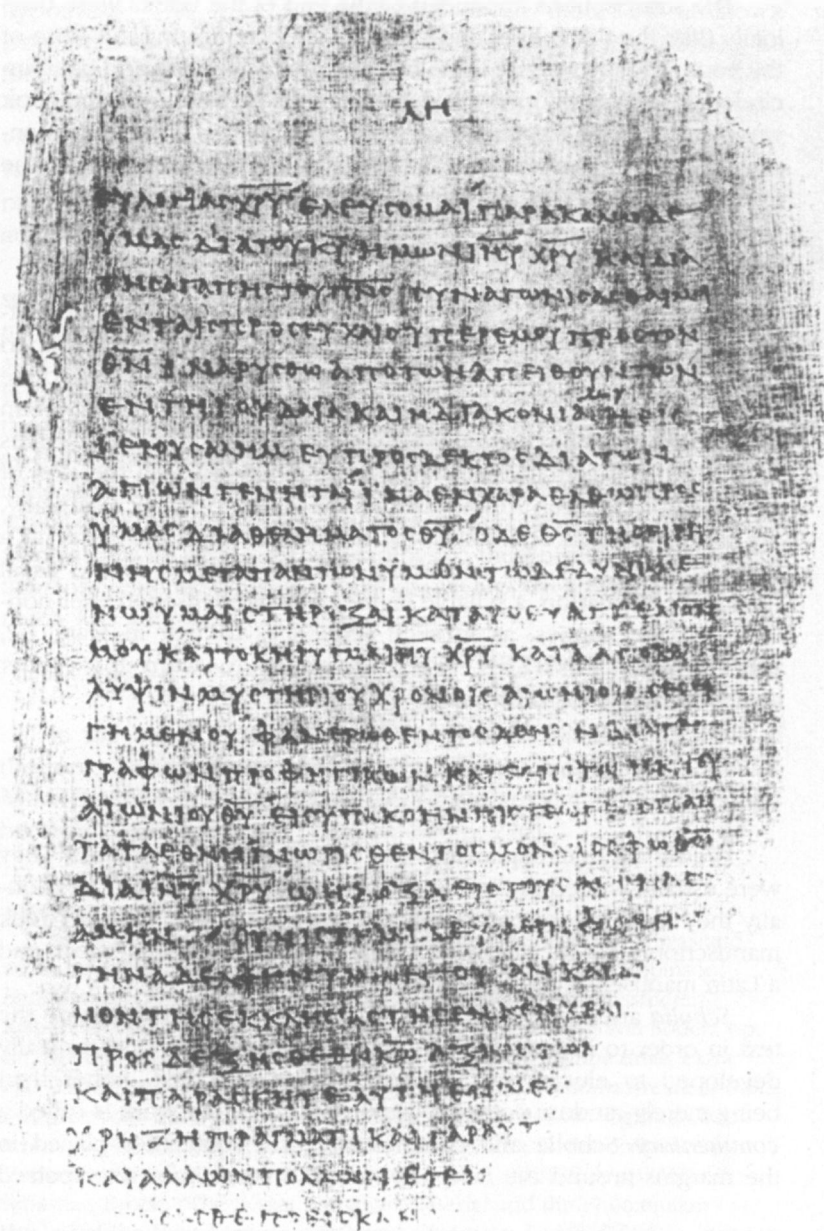 ΛΗ
ΕΥΛΟΓΙΑϹ ΧΡΥ ΕΛΕΥϹΟΜΑΙ ΠΑΡΑΚΑΛΩ ΔΕ
ΥΜΑϹ ΔΙΑ ΤΟΥ ΚΥ ΗΜΩΝ ΙΗΥ ΧΡΥ ΚΑΙ ΔΙΑ
ΤΗϹ ΑΓΑΠΗϹ ΤΟΥ ΠΝϹ ϹΥΝΑΓΩΝΙϹΑϹΘΑΙ ΜΟΙ
ΕΝ ΤΑΙϹ ΠΡΟϹΕΥΧΑΙϹ ΥΠΕΡ ΕΜΟΥ ΠΡΟϹ ΤΟΝ
ΘΝ ΙΝΑ ΡΥϹΘΩ ΑΠΟ ΤΩΝ ΑΠΕΙΘΟΥΝΤΩΝ
ΕΝ ΤΗ ΙΟΥΔΑΙΑ ΚΑΙ Η ΔΙΑΚΟΝΙΑ ΜΟΥ Η ΕΙϹ
ΙΕΡΟΥϹΑΛΗΜ ΕΥΠΡΟϹΔΕΚΤΟϹ ΔΙΑ ΤΩΝ
ΑΓΙΩΝ ΓΕΝΗΤΑΙ ΙΝΑ ΕΝ ΧΑΡΑ ΕΛΘΩ ΠΡΟϹ
ΥΜΑϹ ΔΙΑ ΘΕΛΗΜΑΤΟϹ ΘΥ Ο ΔΕ ΘϹ ΤΗϹ ΕΙΡΗ
ΝΗϹ ΜΕΤΑ ΠΑΝΤΩΝ ΥΜΩΝ ΤΩ ΔΕ ΔΥΝΑΜΕ
ΝΩ ΥΜΑϹ ϹΤΗΡΙΞΑΙ ΚΑΤΑ ΤΟ ΕΥΑΓΓΕΛΙΟΝ
ΜΟΥ ΚΑΙ ΤΟ ΚΗΡΥΓΜΑ ΙΗΥ ΧΡΥ ΚΑΤΑ ΑΠΟΚΑ
ΛΥΨΙΝ ΜΥϹΤΗΡΙΟΥ ΧΡΟΝΟΙϹ ΑΙΩΝΙΟΙϹ ϹΕϹΕΙ
ΓΗΜΕΝΟΥ ΦΑΝΕΡΩΘΕΝΤΟϹ ΔΕ ΝΥΝ ΔΙΑ ΤΕ
ΓΡΑΦΩΝ ΠΡΟΦΗΤΙΚΩΝ ΚΑΤ ΕΠΙΤΑΓΗΝ ΤΟΥ
ΑΙΩΝΙΟΥ ΘΥ ΕΙϹ ΥΠΑΚΟΗΝ ΠΙϹΤΕΩϹ ΕΙϹ ΠΑΝ
ΤΑ ΤΑ ΕΘΝΗ ΓΝΩΡΙϹΘΕΝΤΟϹ ΜΟΝΩ ϹΟΦΩ ΘΩ
ΔΙΑ ΙΗΥ ΧΡΥ Ω Η ΔΟΞΑ ΕΙϹ ΤΟΥϹ ΑΙΩΝΑϹ
ΑΜΗΝ ϹΥΝΙϹΤΗΜΙ ΔΕ ΦΟΙΒΗΝ
ΤΗΝ ΑΔΕΛΦΗΝ ΥΜΩΝ ΟΥϹΑΝ ΚΑΙ ΔΙΑ
ΚΟΝΟΝ ΤΗϹ ΕΚΚΛΗϹΙΑϹ ΤΗϹ ΕΝ ΚΕΝΧΡΕΑΙ
ΠΡΟϹΔΕΞΗϹΘΕ ΕΝ ΚΩ ΑΞΙΩϹ ΤΩΝ
ΚΑΙ ΠΑΡΑϹΤΗΤΕ ΑΥΤΗ ΕΝ Ω ΕΑ
ΧΡΗΖΗ ΠΡΑΓΜΑΤΙ ΚΑΙ ΓΑΡ Α
ΚΑΙ ΑΛΛΩΝ ΠΟΛΛΩΝ